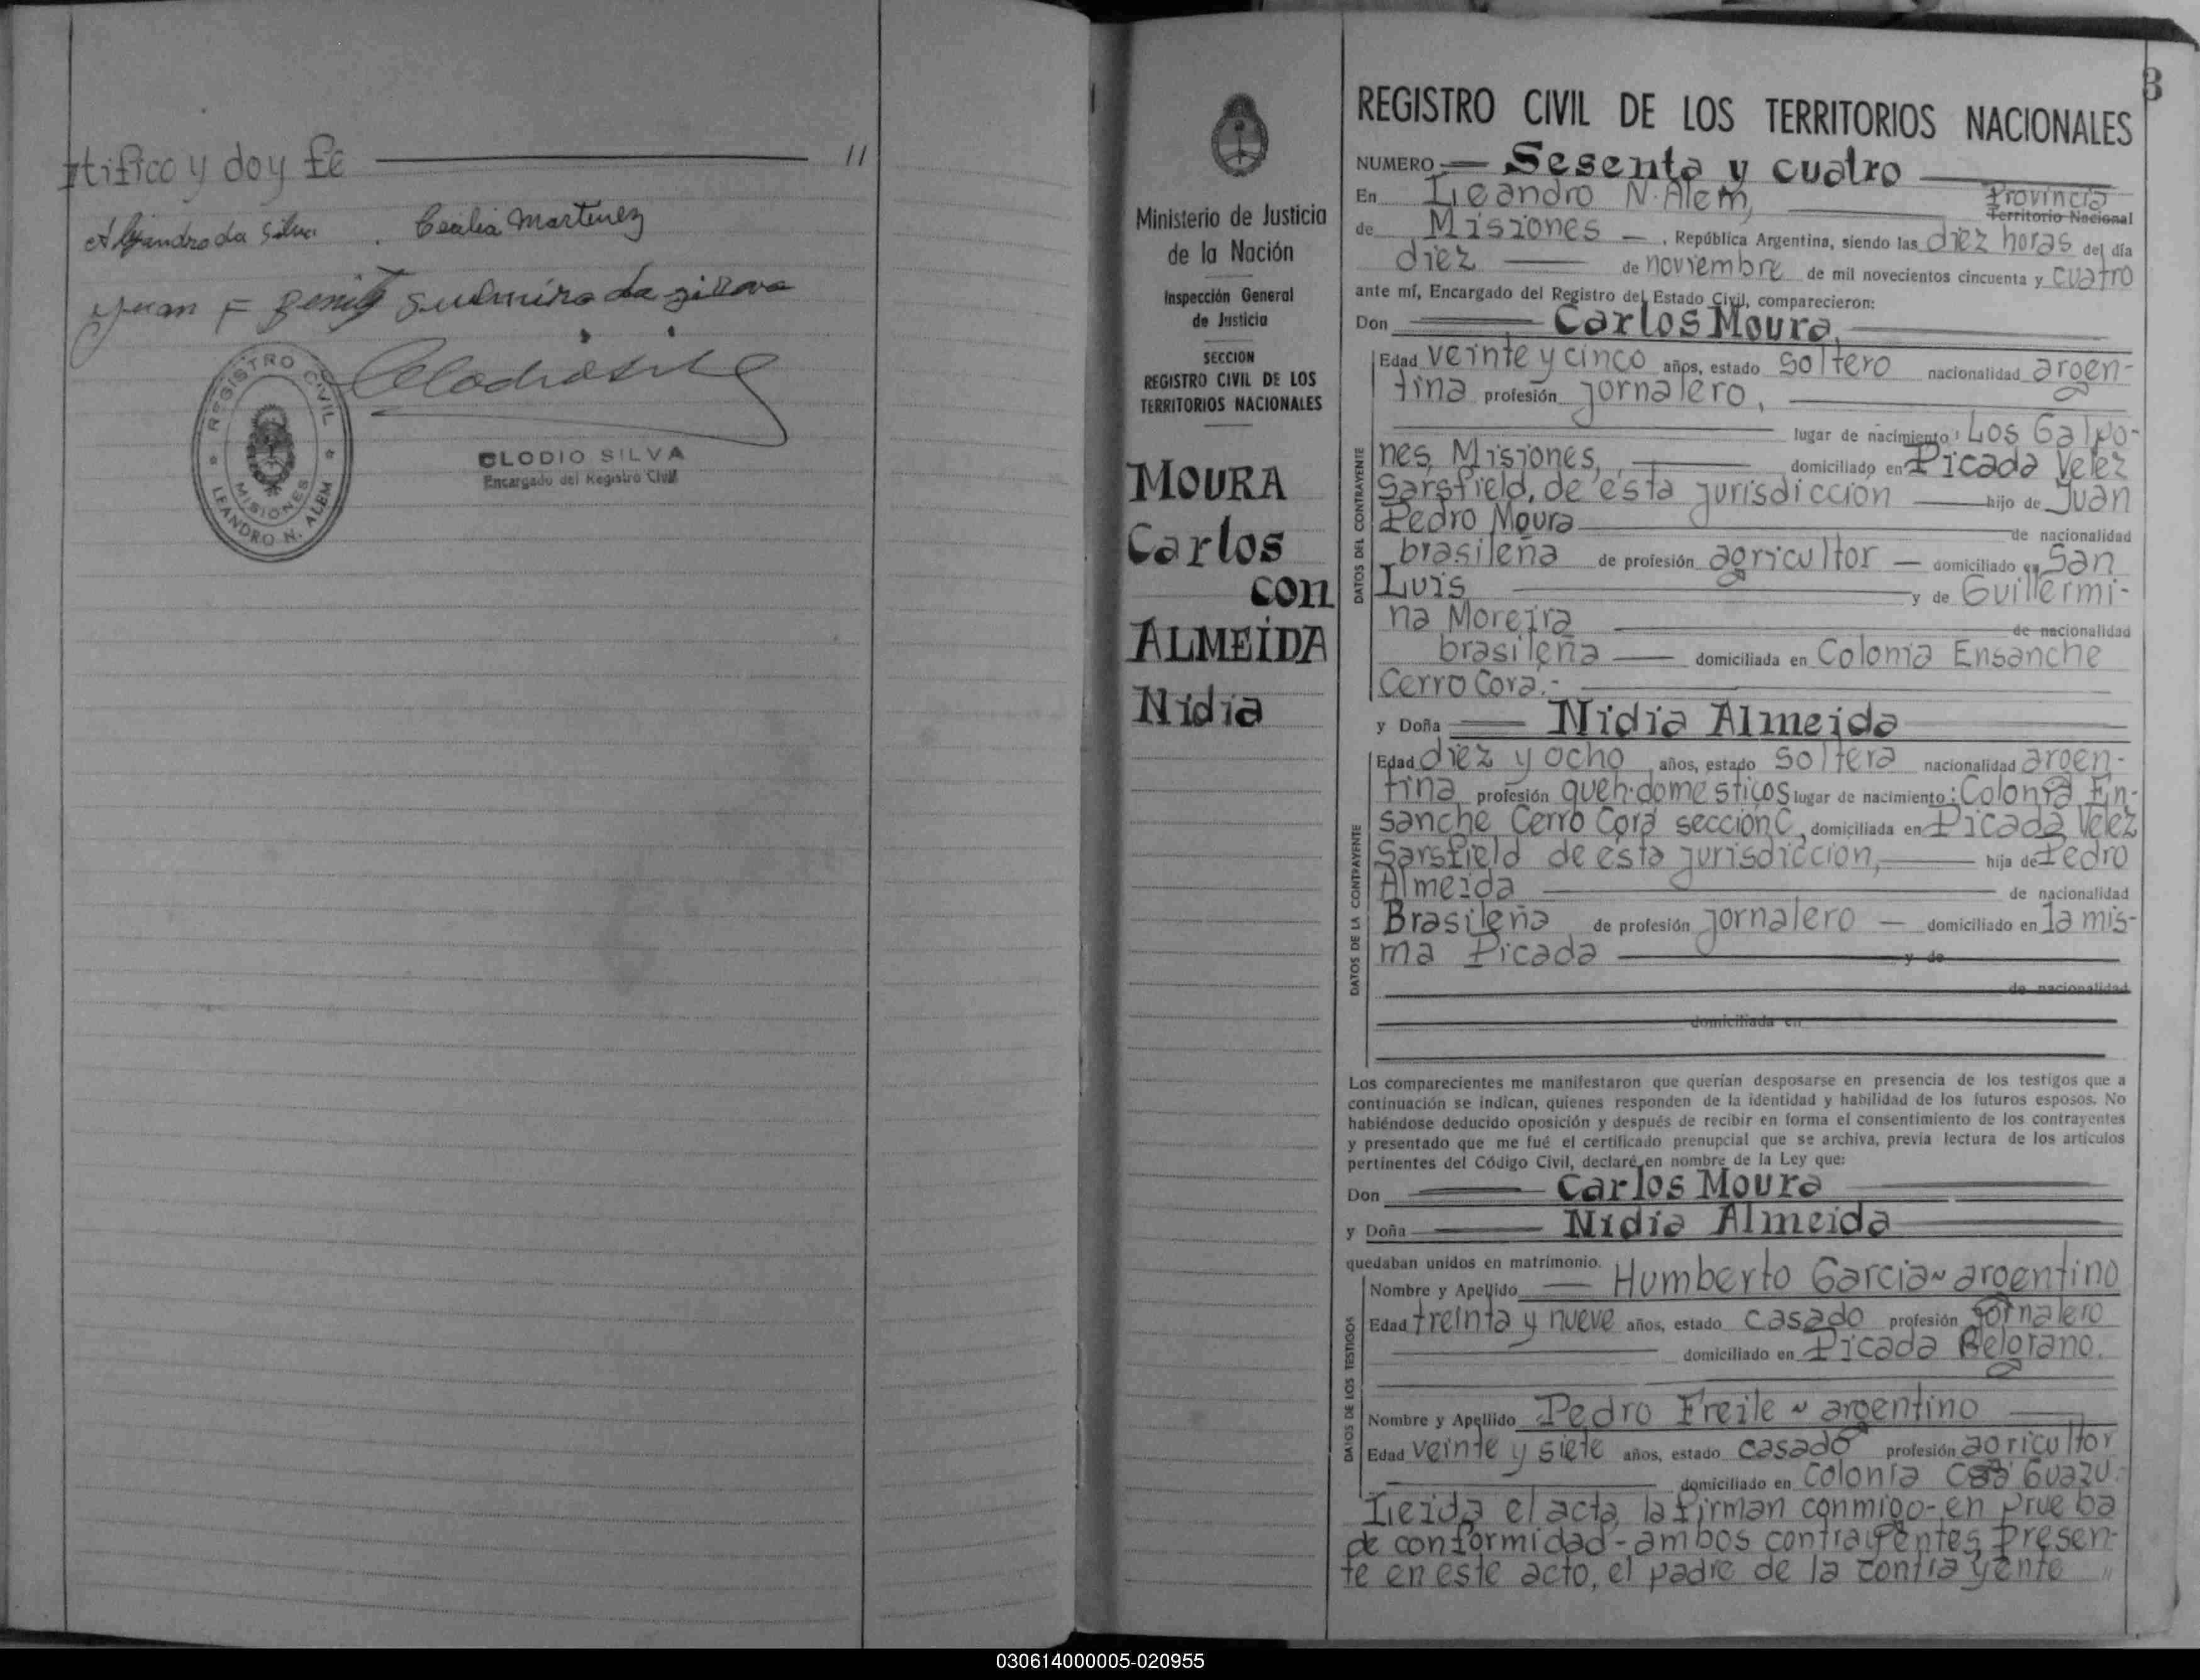 rtifico y doy fé ———— 11
Alejandro da Silva . Cecilia Martinez
Juan F
CLODIO SILVA
Encargado del Registro Civil
REGISTRO CIVIL
MISIONES
LEANDRO N. ALEM
3
Ministerio de Justicia
de la Nación
Inspección General
de Justicia
SECCION
REGISTRO CIVIL DE LOS
TERRITORIOS NACIONALES
MOURA
Carlos
con
ALMEIDA
Nidia
REGISTRO CIVIL DE LOS TERRITORIOS NACIONALES
NUMERO Sesenta y cuatro
En Leandro N. Alem, Provincia
Territorio Nacional
de Misiones —, República Argentina, siendo las diez horas del día
diez — de noviembre de mil novecientos cincuenta y cuatro
ante mí, Encargado del Registro del Estado Civil, comparecieron:
Don Carlos Moura,
DATOS DEL CONTRAYENTE
Edad veinte y cinco años, estado soltero nacionalidad argen-
tina profesión jornalero,
lugar de nacimiento: Los Galpo-
nes, Misiones, domiciliado en Picada Velez
Sarsfield, de esta jurisdicción hijo de Juan
Pedro Moura de nacionalidad
brasileña de profesión agricultor — domiciliado en San
Luis y de Guillermi-
na Moreira de nacionalidad
brasileña — domiciliada en Colonia Ensanche
Cerro Corá.-
y Doña Nidia Almeida
DATOS DE LA CONTRAYENTE
Edad diez y ocho años, estado soltera nacionalidad argen-
tina profesión queh. domésticos lugar de nacimiento: Colonia En-
sanche Cerro Corá sección C, domiciliada en Picada Velez
Sarsfield de esta jurisdicción, hija de Pedro
Almeida de nacionalidad
Brasileña de profesión jornalero — domiciliado en la mis-
ma Picada y de
de nacionalidad
domiciliada en
Los comparecientes me manifestaron que querían desposarse en presencia de los testigos que a
continuación se indican, quienes responden de la identidad y habilidad de los futuros esposos. No
habiéndose deducido oposición y después de recibir en forma el consentimiento de los contrayentes
y presentado que me fué el certificado prenupcial que se archiva, previa lectura de los artículos
pertinentes del Código Civil, declaré en nombre de la Ley que:
Don Carlos Moura
y Doña Nidia Almeida
quedaban unidos en matrimonio.
DATOS DE LOS TESTIGOS
Nombre y Apellido Humberto Garcia ~ argentino
Edad treinta y nueve años, estado casado profesión jornalero
domiciliado en Picada Belgrano.
Nombre y Apellido Pedro Freile ~ argentino
Edad veinte y siete años, estado casado profesión agricultor
domiciliado en Colonia Caá Guazú.-
Leida el acta, la firman conmigo-en prueba
de conformidad-ambos contrayentes, Presen-
te en este acto, el padre de la contrayente "
030614000005-020955